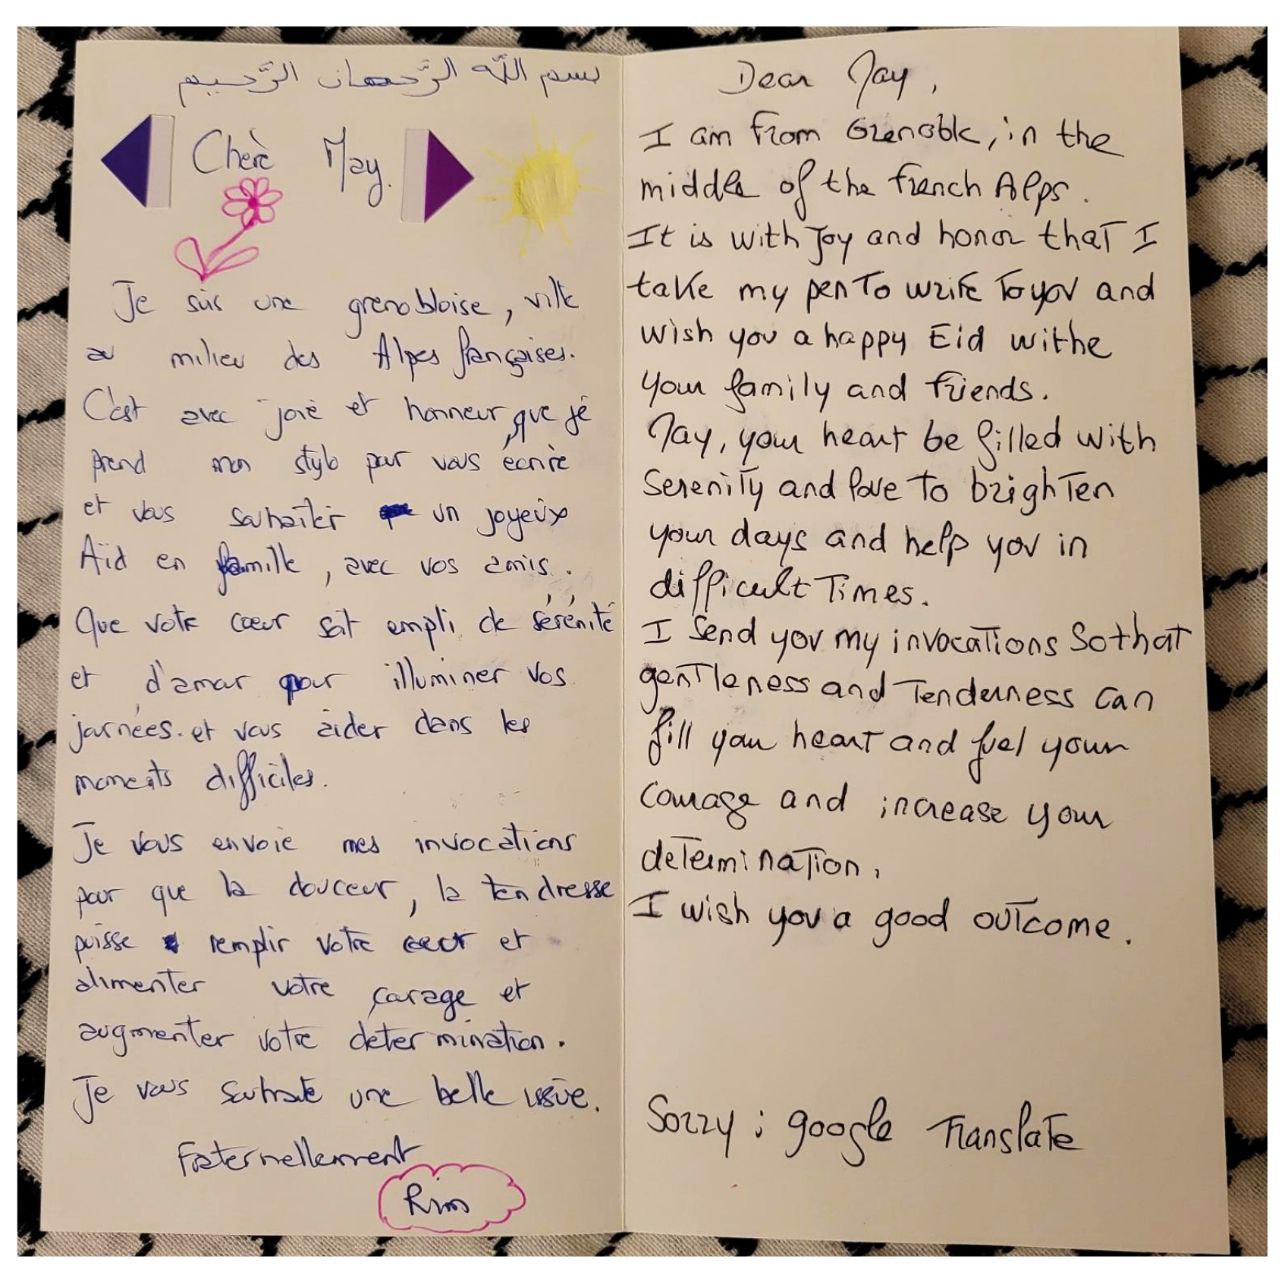 بسم الله الرَّحمان الرَّحيم
Cherè May.
Je suis une grenobloise, ville
au milieu des Alpes françaises.
C'est avec joie et honneur, que je
prend mon stylo pour vous écrire
et vous souhaiter un joyeux
Aïd en famille, avec vos amis.
Que votre cœur soit empli de sérénité
et d'amour pour illuminer vos
journées. et vous aider dans les
moments difficiles.
Je vous envoie mes invocations
pour que la douceur, la tendresse
puisse remplir votre cœur et
alimenter votre courage et
augmenter votre determination.
Je vous souhaite une belle issue.
Fraternellement
Rim
Dear May,
I am from Grenoble, in the
middle of the french Alps.
It is with Joy and honor that I
take my pen To write To you and
wish you a happy Eid withe
your family and friends.
May, your heart be filled with
Serenity and love to brighten
your days and help you in
difficult Times.
I send you my invocations So that
gentleness and Tenderness can
fill your heart and fuel your
Courage and increase your
determination,
I wish you a good outcome.
Sorry ; google Translate